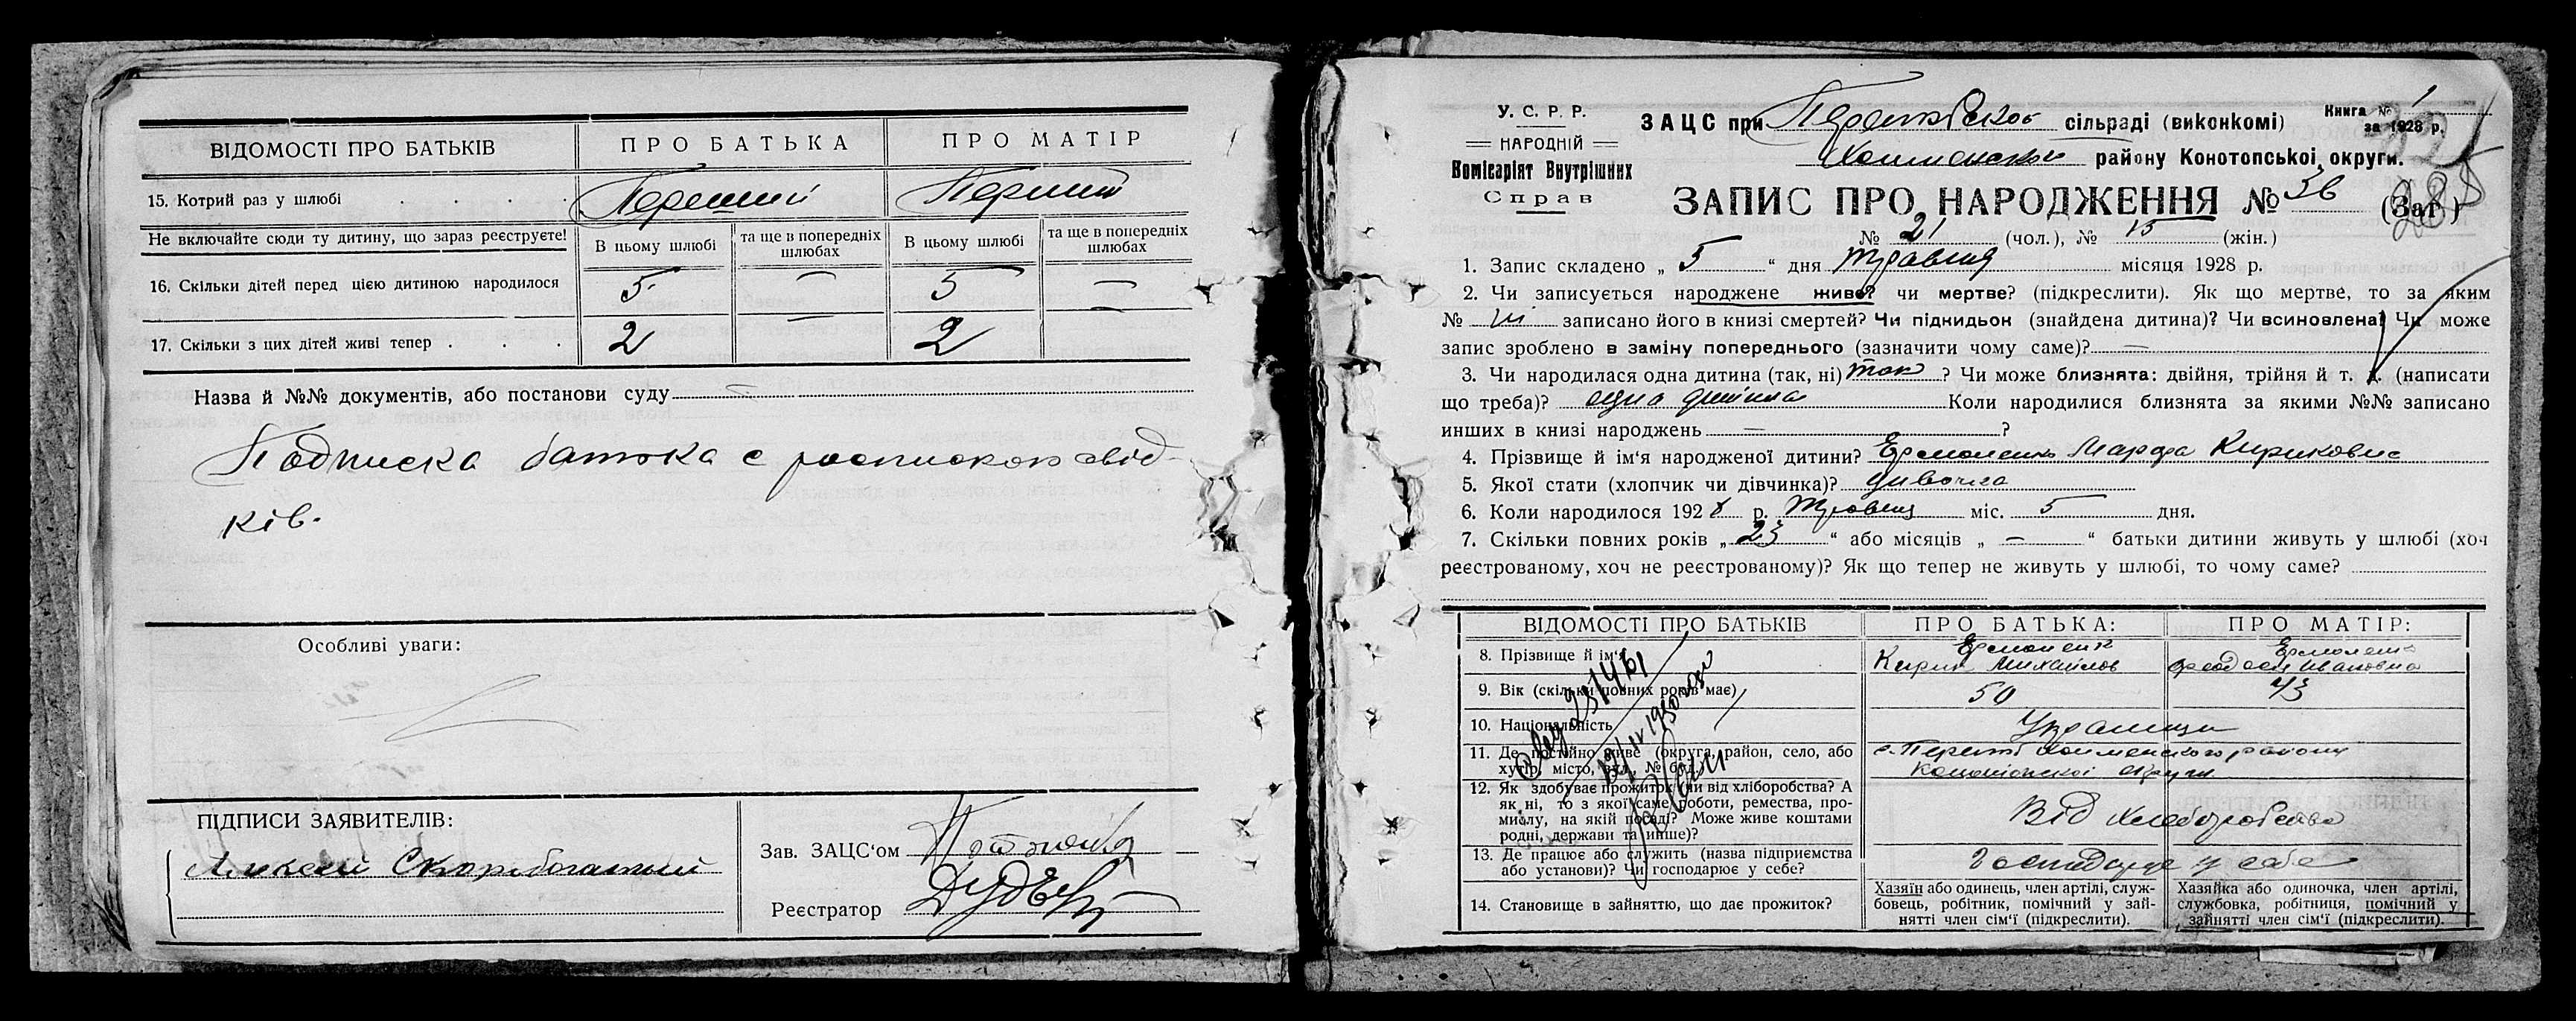 ВІДОМОСТІ ПРО БАТЬКІВ
ПРО БАТЬКА
ПРО МАТІР
15. Котрий раз у шлюбі . . . .
Перший
Перший
Не включайте сюди ту дитину, що зараз реєструєте!
В цьому шлюбі
та ще в попередніх шлюбах
В цьому шлюбі
та ще в попередніх шлюбах
16. Скільки дітей перед цією дитиною народилося
5
—
5
—
17. Скільки з цих дітей живі тепер . . .
2
—
2
Назва й №№ документів, або постанови суду —
Подписка батька с роспискою свід-
ків.
Особливі уваги:
ПІДПИСИ ЗАЯВИТЕЛІВ:
Алексей Скоробогатый
Зав. ЗАЦС‘ом
Реєстратор
У. С. Р. Р.
НАРОДНІЙ
Комісаріят Внутрішних
Справ
ЗАЦС при сільраді (виконкомі)
Книга № 1
за 1928 р.
району Конотопської округи.
ЗАПИС ПРО НАРОДЖЕННЯ № 36 (Заг )
№ 21 (чол.), № 15 (жін.)
1. Запис складено „ 5 “ дня Травня місяця 1928 р.
2. Чи записується народжене живе? чи мертве? (підкреслити). Як що мертве, то за яким
№ записано його в книзі смертей? Чи підкидьок (знайдена дитина)? Чи всиновлена? Чи може
запис зроблено в заміну попереднього (зазначити чому саме)? —
3. Чи народилася одна дитина (так, ні) так ? Чи може близнята: двійня, трійня й т. д. (написати
що треба)? одна дитина Коли народилися близнята за якими №№ записано
инших в книзі народжень — ?
4. Прізвище й ім‘я народженої дитини? Ермоленко Марфа Кириковна
5. Якої стати (хлопчик чи дівчинка)? дивочка
6. Коли народилося 1928 р. Травня міс. 5 дня.
7. Скільки повних років „ 23 “ або місяців „ — “ батьки дитини живуть у шлюбі (хоч
реєстрованому, хоч не реєстрованому)? Як що тепер не живуть у шлюбі, то чому саме?
ВІДОМОСТІ ПРО БАТЬКІВ
ПРО БАТЬКА:
ПРО МАТІР:
8. Прізвище й ім‘я
Ермоленко
Кирик Михайлов
Ермоленко
Феодосия Ивановна
9. Вік (скільки повних років має)
50
43
10. Національність
Украинци
11. Де постійно живе (округа, район, село, або
хутір, місто, вул., № буд.)
района
Конотопскої округи
12. Як здобуває прожиток (чи від хліборобства? А
як ні, то з якої саме роботи, ремества, про-
мислу, на якій посаді? Може живе коштами
родні, держави та інше)?
Від хлеборобства
13. Де працює або служить (назва підприємства
або установи)? Чи господарює у себе?
Господарює у себе
14. Становище в зайняттю, що дає прожиток?
Хазяїн або одинець, член артілі, служ-
бовець, робітник, помічний у зай-
нятті член сім‘ї (підкреслити).
Хазяйка або одиночка, член артілі,
службовка, робітниця, помічний у
зайнятті член сім‘ї (підкреслити).